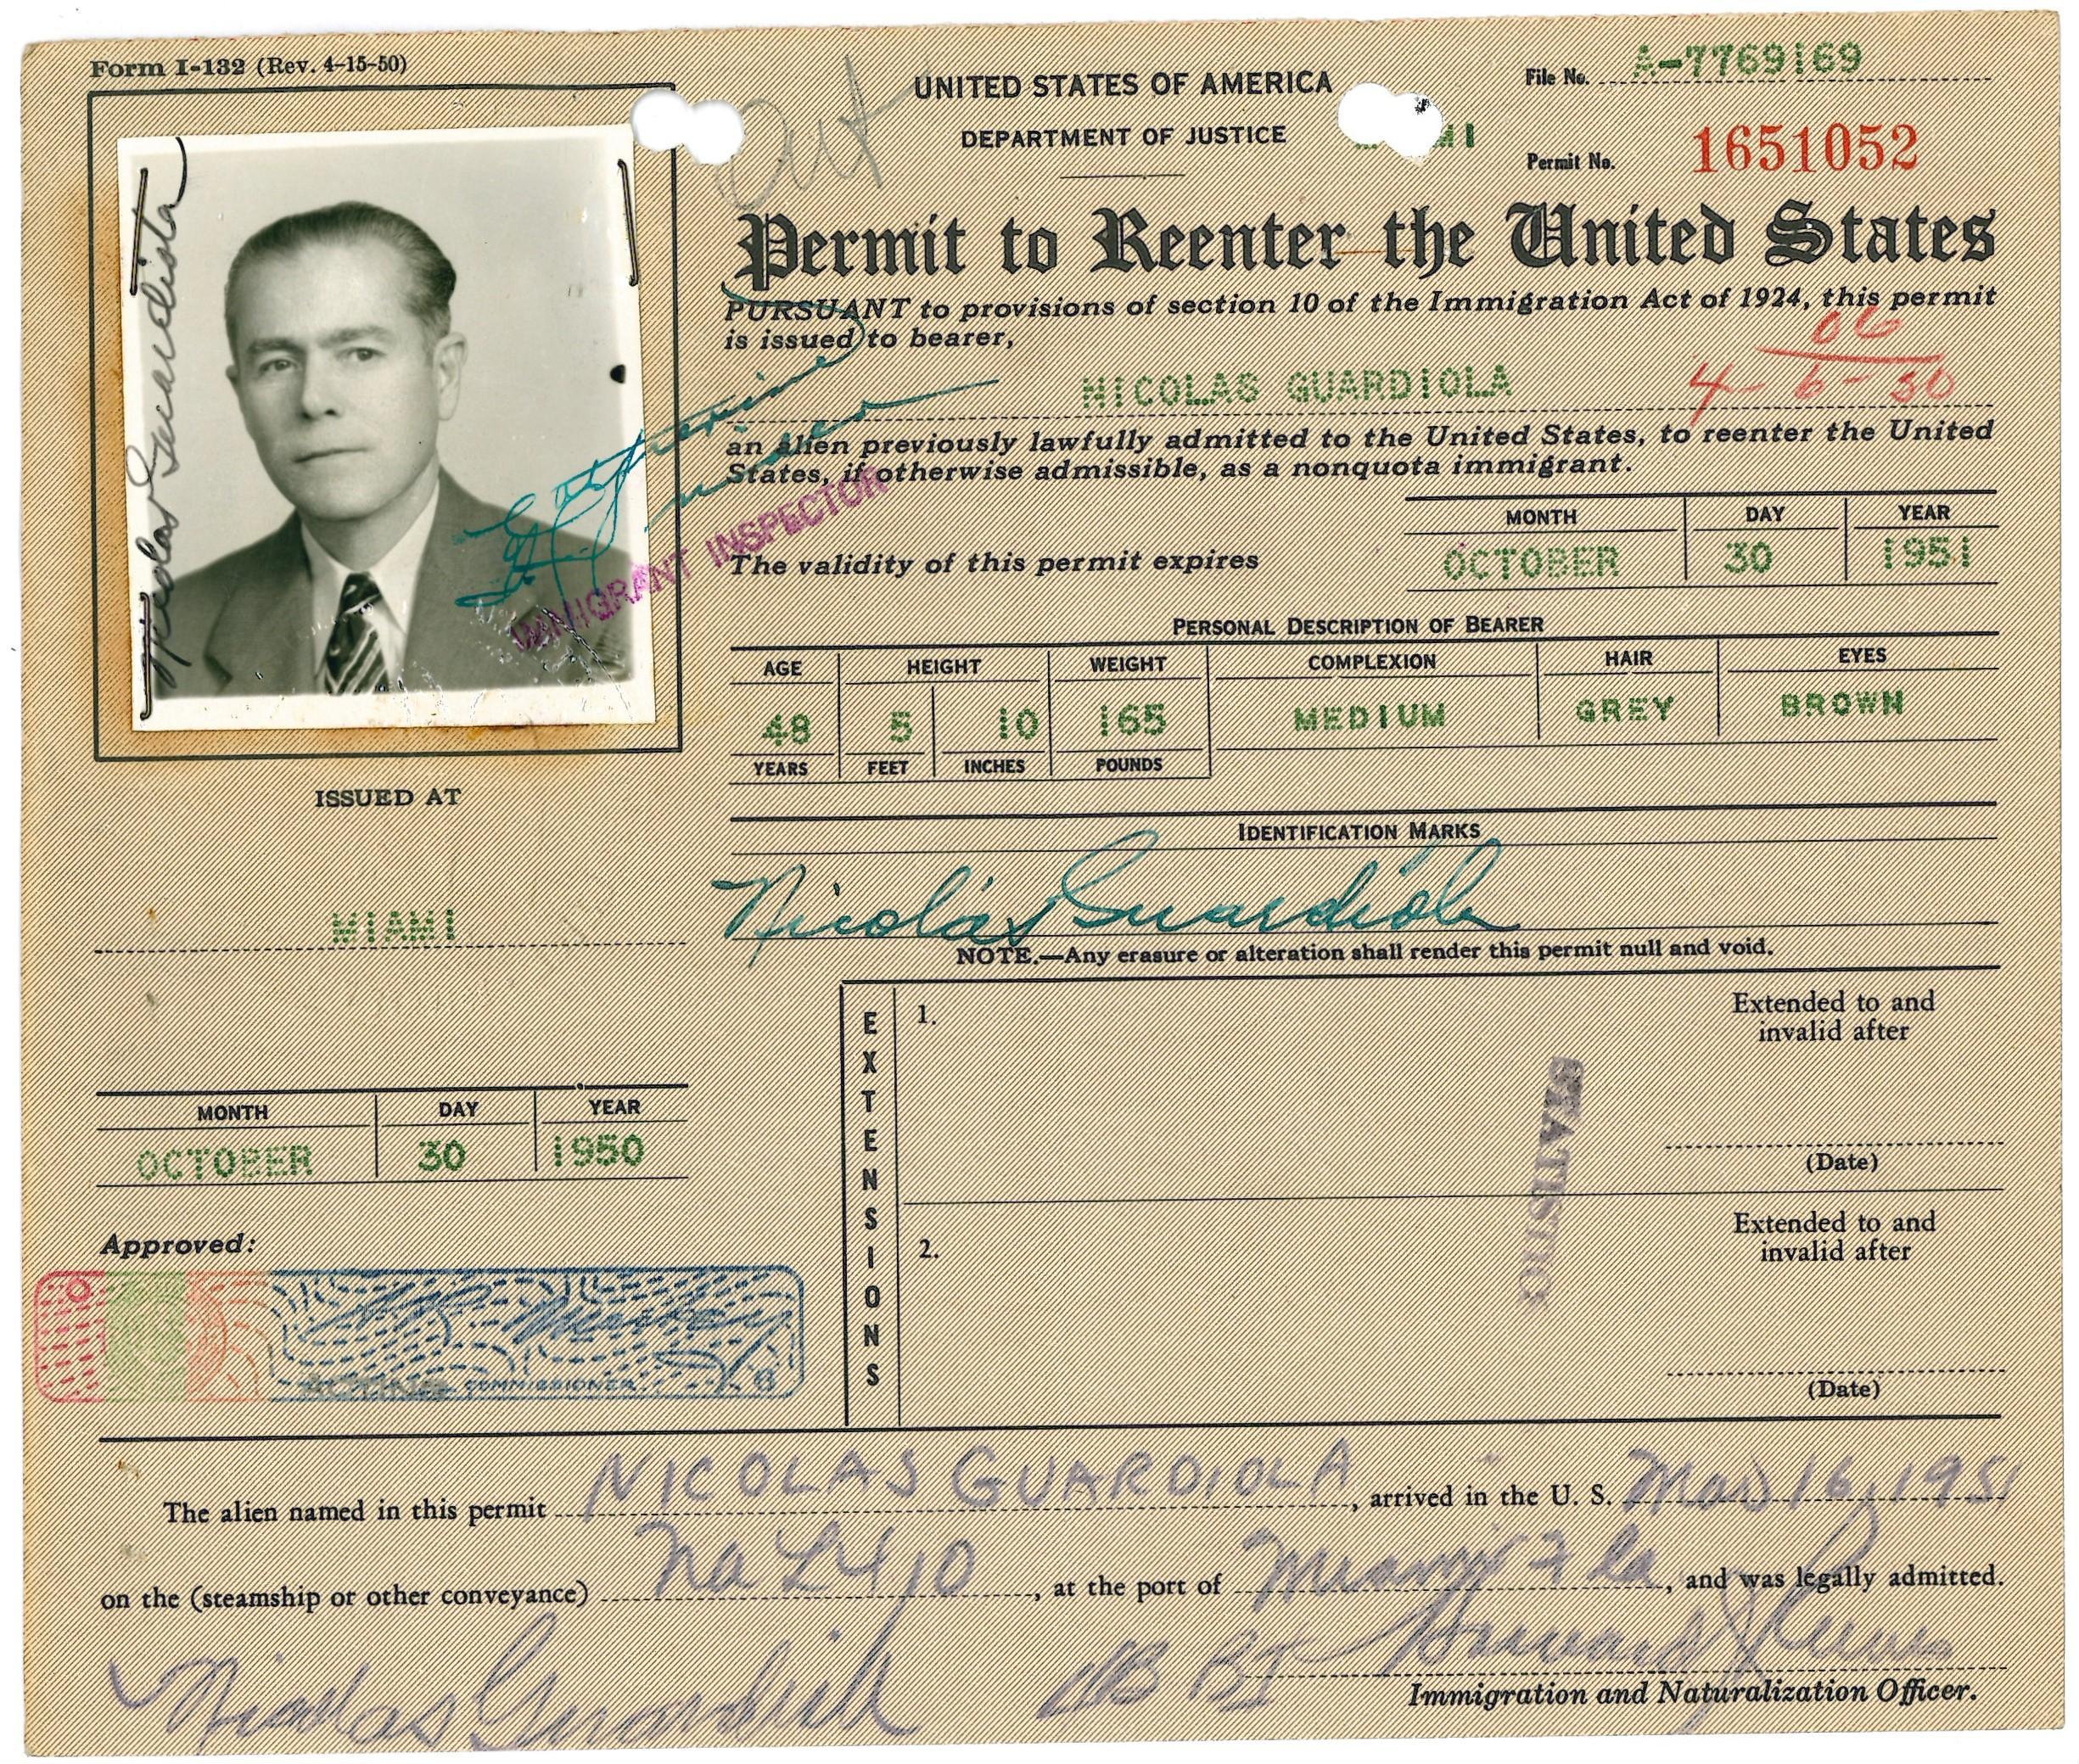 Form I-132 (Rev. 4-15-50)
Out
UNITED STATES OF AMERICA
DEPARTMENT OF JUSTICE
File No. A-7769169
Permit No. 1651052
Permit to Reenter the United States
PURSUANT to provisions of section 10 of the Immigration Act of 1924, this permit
is issued to bearer,
NICOLAS GUARDIOLA
4-6-50
an alien previously lawfully admitted to the United States, to reenter the United
States, if otherwise admissible, as a nonquota immigrant.
Nicolas Guardiola
IMMIGRANT INSPECTOR
The validity of this permit expires
MONTH DAY YEAR
OCTOBER 30 1951
PERSONAL DESCRIPTION OF BEARER
AGE HEIGHT WEIGHT COMPLEXION HAIR EYES
48 5 10 165 MEDIUM GREY BROWN
YEARS FEET INCHES POUNDS
IDENTIFICATION MARKS
Nicolás Guardiola
NOTE.—Any erasure or alteration shall render this permit null and void.
ISSUED AT
MIAMI
MONTH DAY YEAR
OCTOBER 30 1950
Approved:
COMMISSIONER
EXTENSIONS
1.
Extended to and
invalid after
(Date)
2.
Extended to and
invalid after
(Date)
STATISTICS
The alien named in this permit NICOLAS GUARDIOLA, arrived in the U. S. Mar 16, 1951
on the (steamship or other conveyance) Na L410, at the port of Miami Fla, and was legally admitted.
Nicolas Guardiola
Immigration and Naturalization Officer.